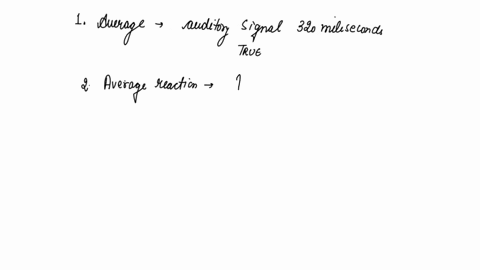 1. Average → auditory signal 320 miliseconds
TRUE
2. Average reaction →